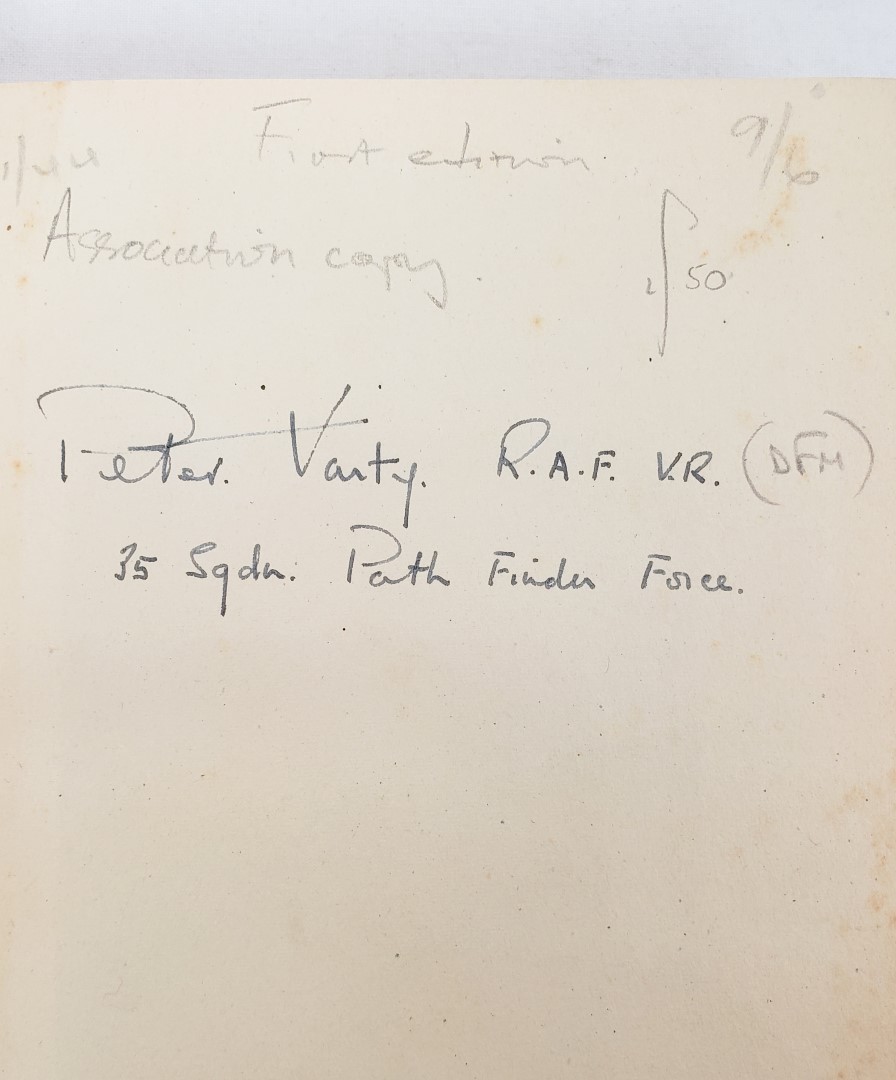 First edition. 9/6
Association copy. 50
Peter. Varty. R.A.F. V.R. (DFM)
35 Sqdn. Path Finder Force.